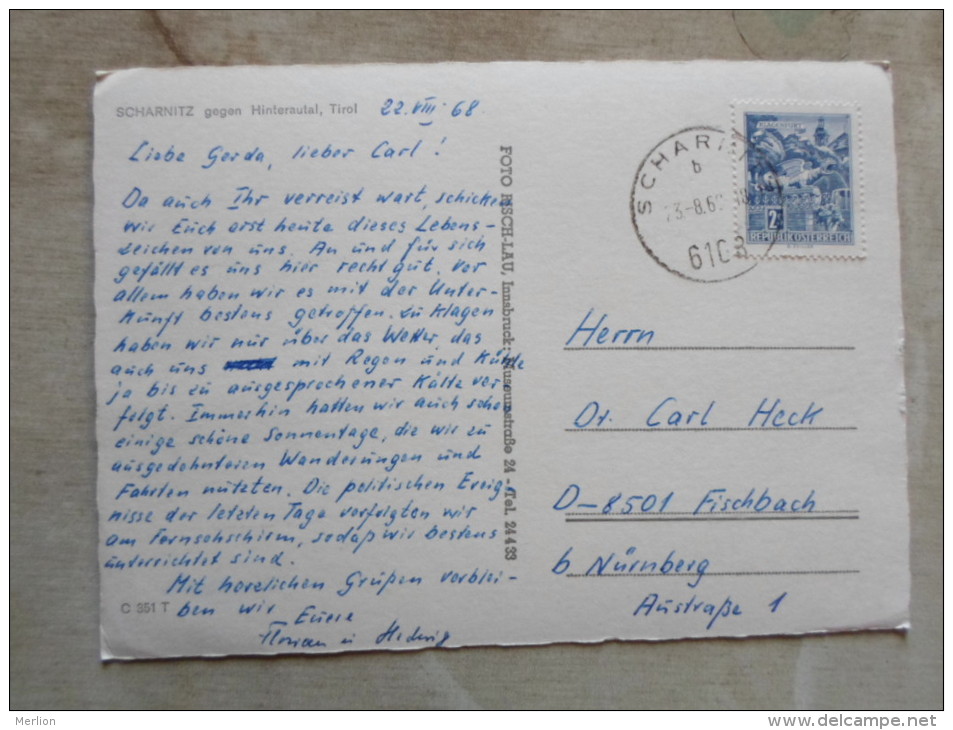 SCHARNITZ gegen Hinterautal, Tirol
22. VIII. 68
Liebe Gerda, lieber Carl!
Da auch Ihr verreist wart, schicken
wir Euch erst heute dieses Lebens-
zeichen von uns. An und für sich
gefällt es uns hier recht gut. Vor
allem haben wir es mit der Unter-
kunft bestens getroffen. Zu klagen
haben wir nur über das Wetter, das
auch uns mit Regen und Kühle
ja bis zu ausgesprochener Kälte ver
folgt. Immerhin hatten wir auch schon
einige schöne Sonnentage, die wir zu
ausgedehnteren Wanderungen und
Fahrten nützten. Die politischen Ereig-
nisse der letzten Tage verfolgten wir
am Fernsehschirm, sodaß wir bestens
unterrichtet sind.
Mit herzlichen Grüßen verblei-
ben wir
Euere
Florian u Hedwig
C 351 T
FOTO RISCH-LAU, Innsbruck, Museumstraße 24 - Tel. 24 4 33
SCHARNITZ
b
23.-8.68
6108
KLAGENFURT
2
REPUBLIK ÖSTERREICH
Herrn
Dr. Carl Heck
D-8501 Fischbach
b Nürnberg
Austraße 1
Merlion